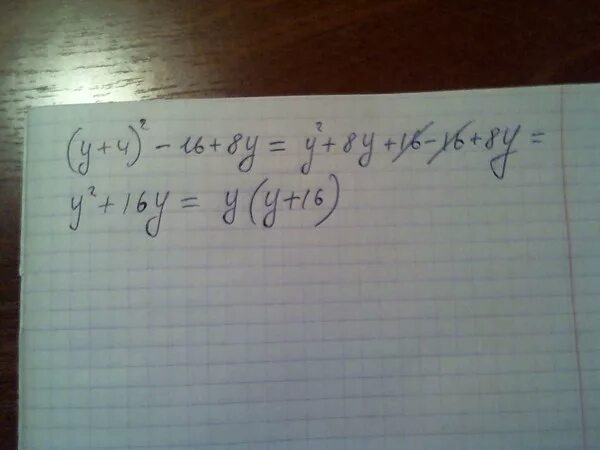 (y+4)² - 16 + 8y = y² + 8y + 16 - 16 + 8y =
y² + 16y = y(y+16)